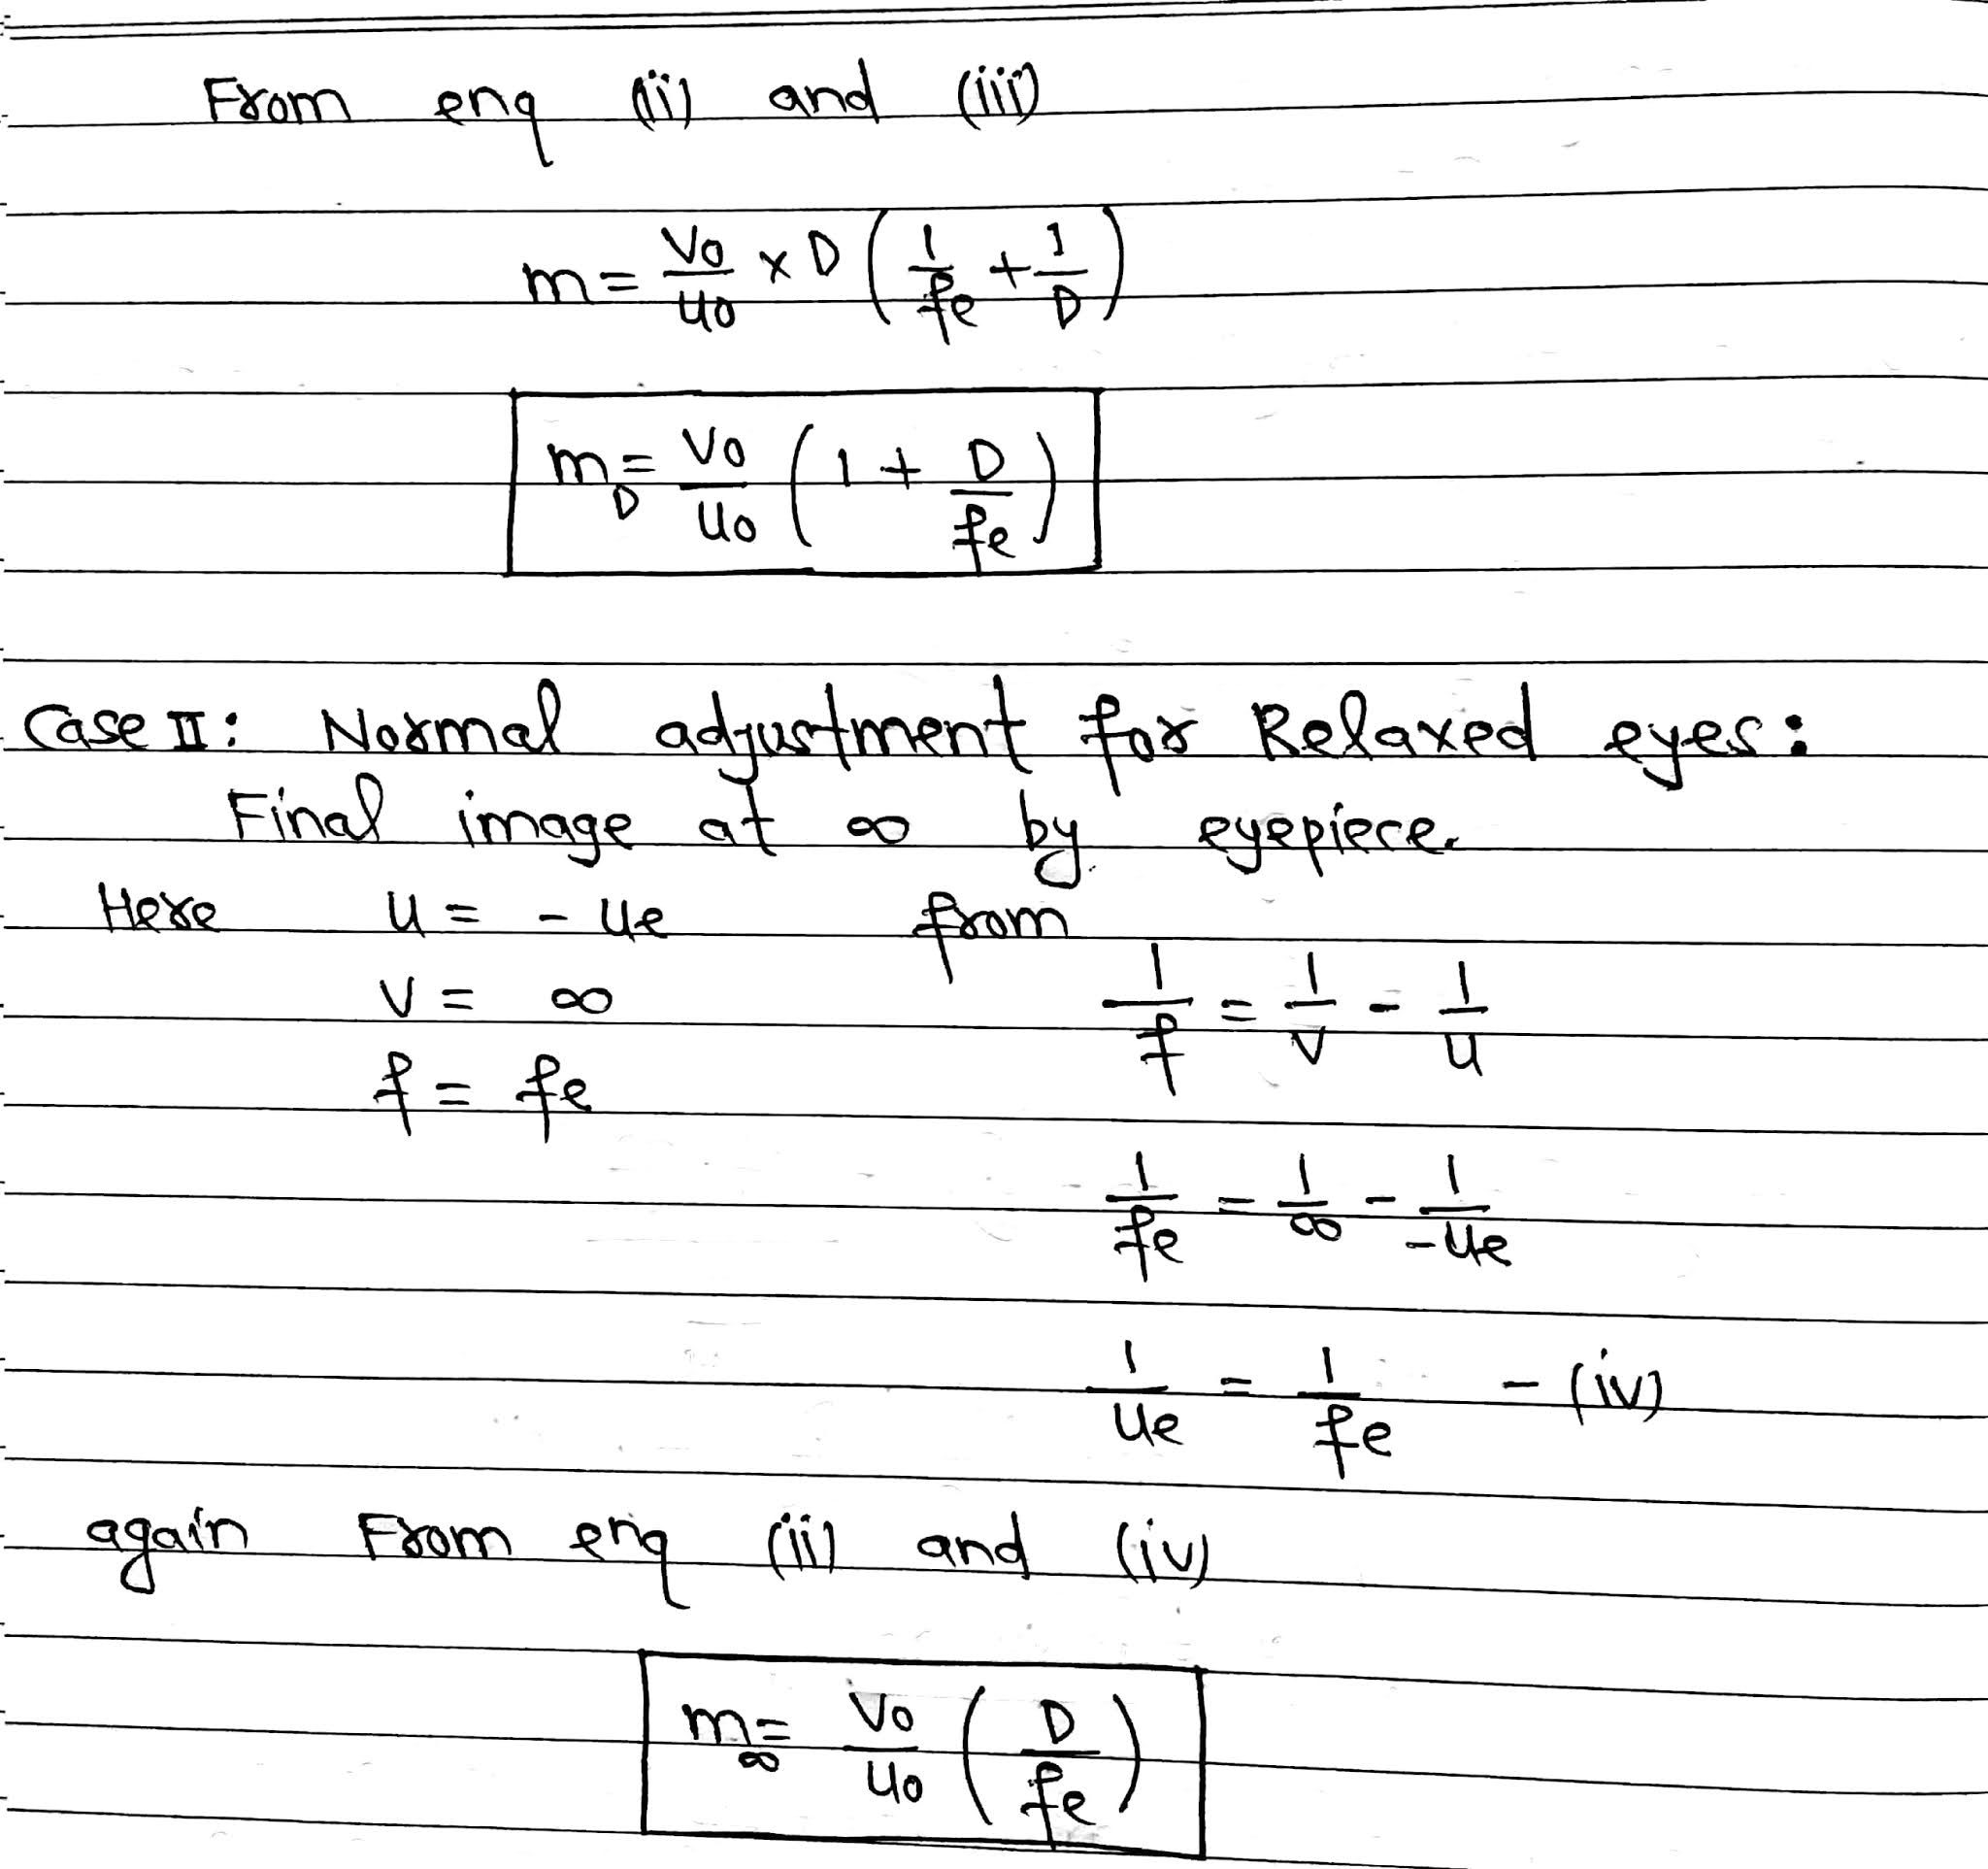 From enq (ii) and (iii)
m = Vo/uo × D (1/fe + 1/D)
m_D = Vo/uo (1 + D/fe)
Case II: Normal adjustment for Relaxed eyes:
Final image at ∞ by eyepiece.
Here u = - ue from
v = ∞ 1/f = 1/v - 1/u
f = fe
1/fe = 1/∞ - 1/-ue
1/ue = 1/fe - (iv)
again From enq (ii) and (iv)
m_∞ = Vo/uo (D/fe)